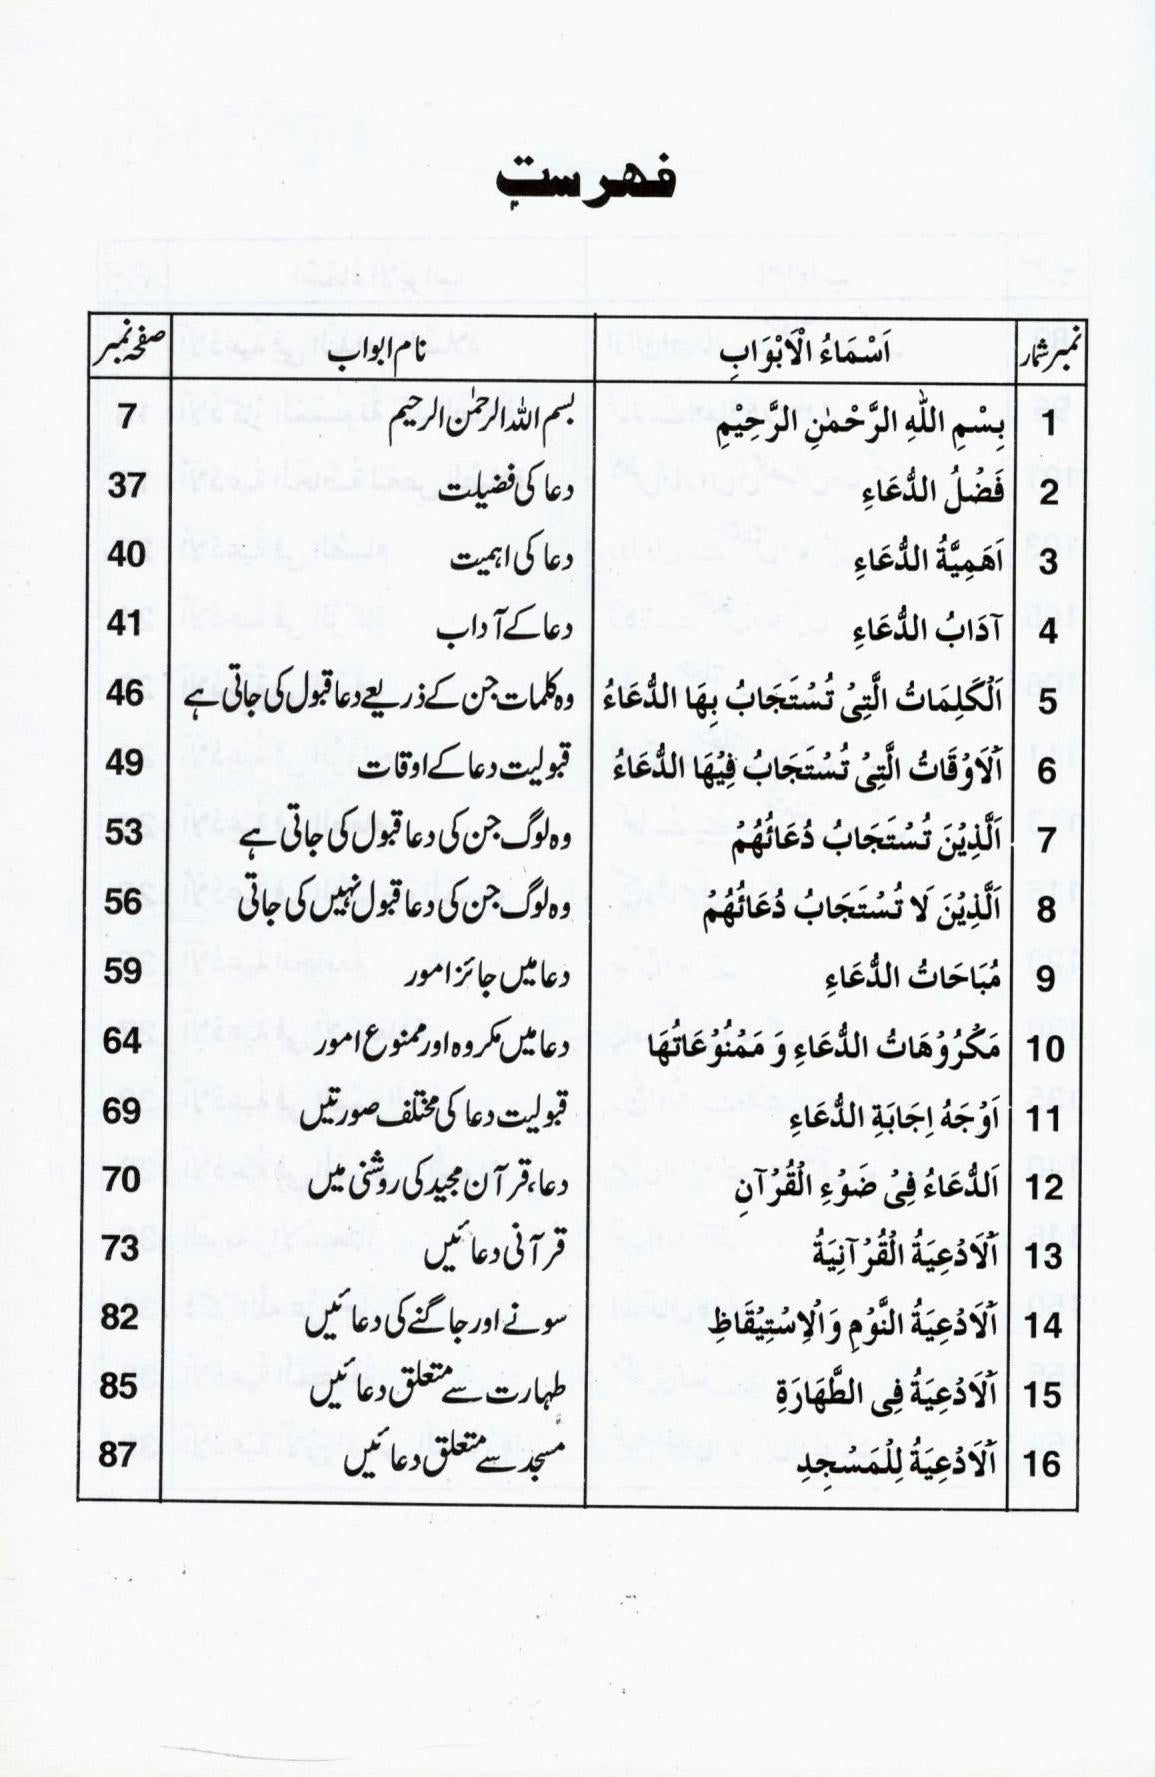 فہرست
نمبر شمار اَسْمَاءُ الْاَبْوَابِ نام ابواب صفحہ نمبر
1 بِسْمِ اللّٰهِ الرَّحْمٰنِ الرَّحِيْمِ بسم اللہ الرحمٰن الرحیم 7
2 فَضْلُ الدُّعَاءِ دعا کی فضیلت 37
3 اَهَمِيَّةُ الدُّعَاءِ دعا کی اہمیت 40
4 آدَابُ الدُّعَاءِ دعا کے آداب 41
5 اَلْكَلِمَاتُ الَّتِيْ تُسْتَجَابُ بِهَا الدُّعَاءُ وہ کلمات جن کے ذریعے دعا قبول کی جاتی ہے 46
6 اَلْاَوْقَاتُ الَّتِيْ تُسْتَجَابُ فِيْهَا الدُّعَاءُ قبولیت دعا کے اوقات 49
7 اَلَّذِيْنَ تُسْتَجَابُ دُعَائُهُمْ وہ لوگ جن کی دعا قبول کی جاتی ہے 53
8 اَلَّذِيْنَ لَا تُسْتَجَابُ دُعَائُهُمْ وہ لوگ جن کی دعا قبول نہیں کی جاتی 56
9 مُبَاحَاتُ الدُّعَاءِ دعا میں جائز امور 59
10 مَكْرُوْهَاتُ الدُّعَاءِ وَ مَمْنُوْعَاتُهَا دعا میں مکروہ اور ممنوع امور 64
11 اَوْجَهُ اِجَابَةِ الدُّعَاءِ قبولیت دعا کی مختلف صورتیں 69
12 اَلدُّعَاءُ فِيْ ضَوْءِ الْقُرْآنِ دعاء قرآن مجید کی روشنی میں 70
13 اَلْاَدْعِيَةُ الْقُرْآنِيَةُ قرآنی دعائیں 73
14 اَلْاَدْعِيَةُ النَّوْمِ وَالْاِسْتِيْقَاظِ سونے اور جاگنے کی دعائیں 82
15 اَلْاَدْعِيَةُ فِي الطَّهَارَةِ طہارت سے متعلق دعائیں 85
16 اَلْاَدْعِيَةُ لِلْمَسْجِدِ مسجد سے متعلق دعائیں 87